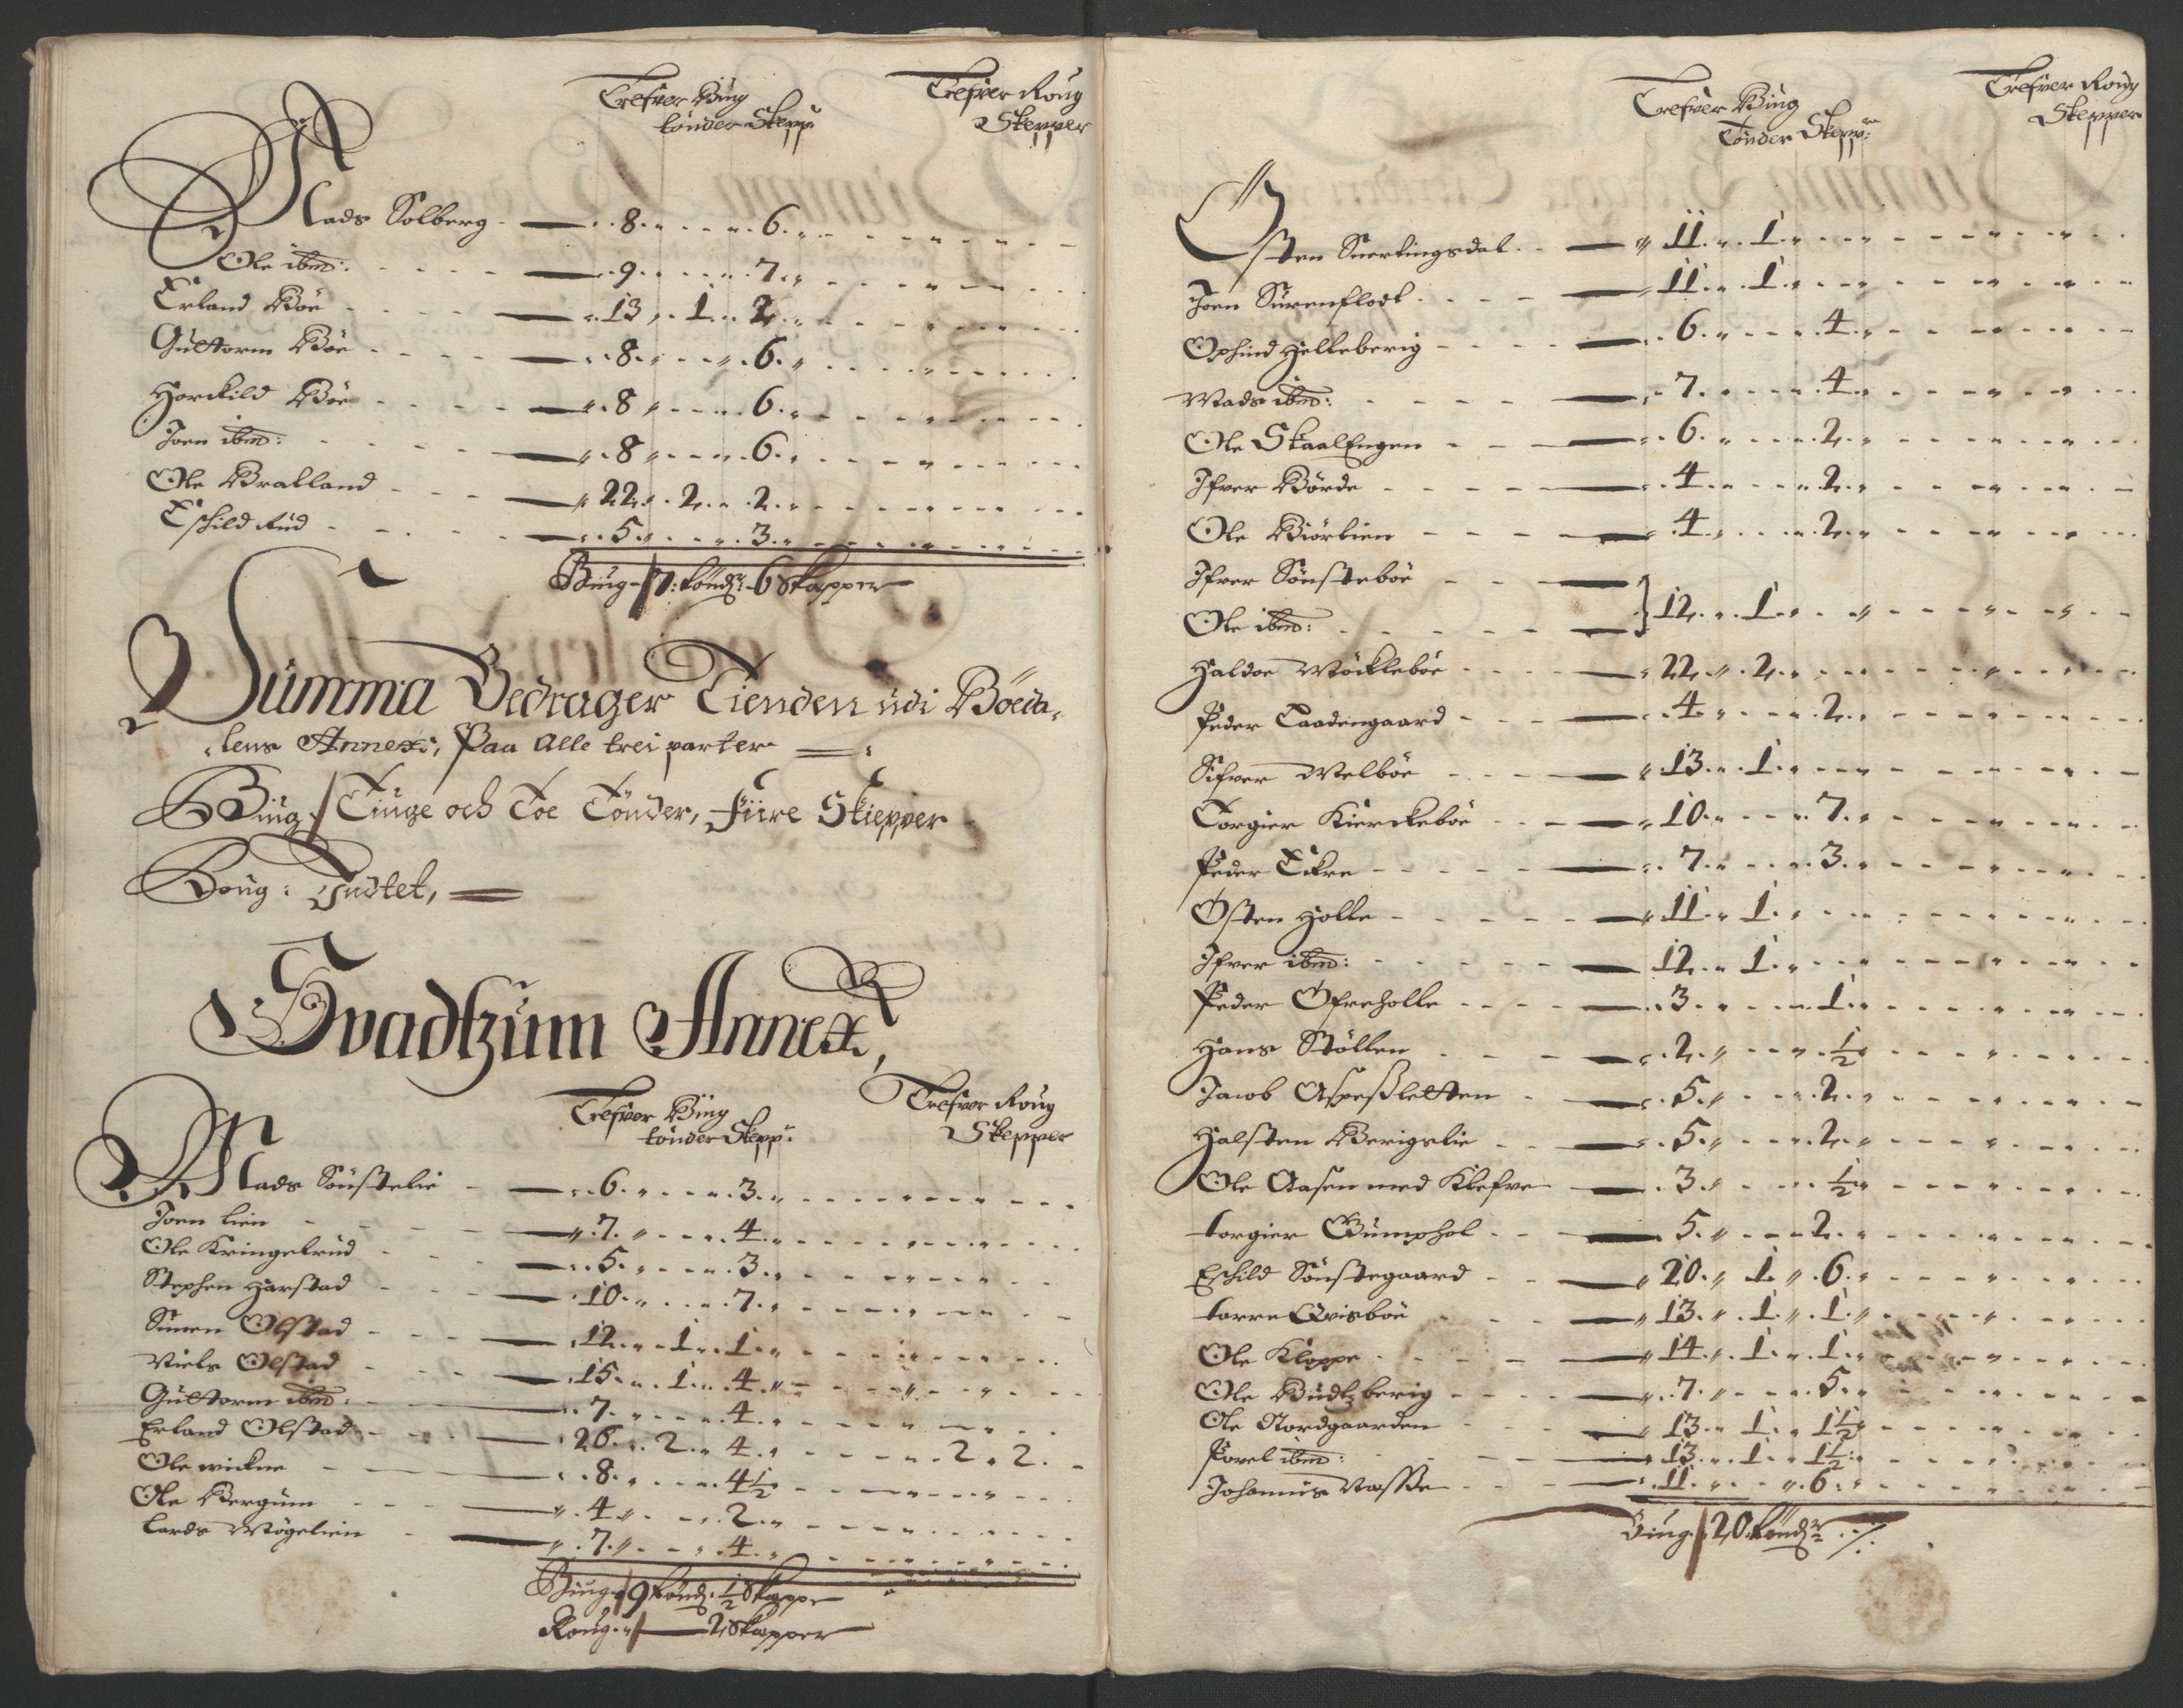 Trefver Biug
tönder Skepp:
Trefver Roug
Skepper
Mads Solberg - 8. 6.
Ole ibm: 9. 7.
Erland Böe 13. 1. 2.
Guttorm Böe 8. 6.
Torckild Böe 8. 6.
Joen ibm: 8. 6.
Ole Bralland 22. 2. 2.
Eschild Rud 5. 3.
Biug - 7: tönd: 6 Skepper
Summa Bedrager Tienden udi Böeda,
lens Annexi, Paa Alle trei parter
Biug: Tiuge och Toe Tönder, Fiire Skiepper
Roug: Indtet,
Svadtzum Annex,
Trefver Biug
tönder Skepp:
Trefver Roug
Skepper
Mads Sönstelie 6. 3.
Joen Lien 7. 4.
Ole Kringelrud 5. 3.
Stephen Harstad 10. 7.
Simen Olstad 12. 1. 1.
Niels Olstad 15. 1. 4.
Guttorm ibm: 7. 4.
Erland Olstad 26. 2. 4. 2. 2.
Ole wickne 8. 4½
Ole Bergum 4. 2.
Lards Mögelien 7. 4.
Biug 9 tönd: ½ Skeppe
Roug. 2 Skepper
Trefver Biug
Tönder Skepp:
Trefver Roug
Skepper
Östen Snertingsdal 11. 1.
Joen Surenflodt 11. 1.
Ophind Helleberig 6. 4.
Mads ibm: 7. 4.
Ole SkaalEngen 6. 2.
Ifver Börde 4. 2.
Ole Biörlien 4. 2.
Ifver Sönsteböe
Ole ibm: 12. 1.
Haldor Möckleböe 22. 2.
Peder Taadengaard 4. 2.
Sifver Melböe 13. 1.
Torgier Kierckeböe 10. 7.
Peder Eckre 7. 3.
Östen Holle 11. 1.
Ifver ibm: 12. 1.
Peder Öfreholle 3. 1.
Hans Stöllen 2. ½
Jacob Aspesletten 5. 2.
Halsten Berigslie 5. 2.
Ole Aasen med Klefve 3. ½
torgier Gumphol 5. 2.
Eschild Sönstegaard 20. 1. 6.
torre Qvisböe 13. 1. 1.
Ole Kloppe 14. 1. 1.
Ole Budtzberig 7. 5.
Ole Nordgaarden 13. 1. 1½
Povel ibm: 13. 1. 1½
Johannis 11. 6.
Biug. 20 tönd: